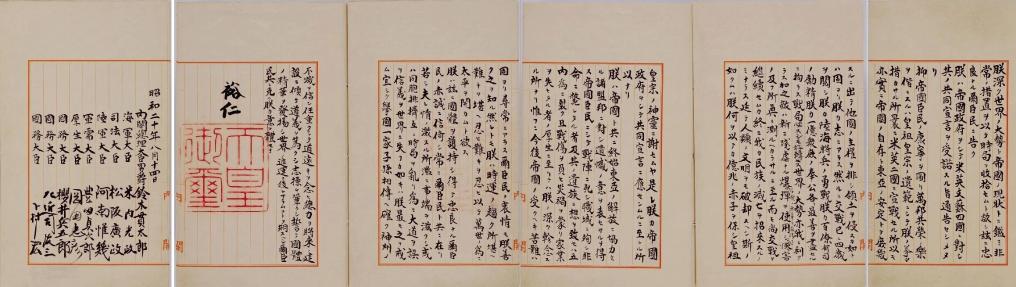 朕深ク世界ノ大勢ト帝國ノ現狀トニ鑑ミ非
常ノ措置ヲ以テ時局ヲ收拾セムト欲シ茲ニ忠
良ナル爾臣民ニ告ク
朕ハ帝國政府ヲシテ米英支蘇四國ニ對シ
其ノ共同宣言ヲ受諾スル旨通告セシメタ
リ
抑〻帝國臣民ノ康寧ヲ圖リ萬邦共榮ノ樂
ヲ偕ニスルハ皇祖皇宗ノ遺範ニシテ朕ノ拳々
措カサル所曩ニ米英二國ニ宣戰セル所以モ
亦實ニ帝國ノ自存ト東亞ノ安定トヲ庶幾
スルニ出テ他國ノ主權ヲ排シ領土ヲ侵スカ如キ
ハ固ヨリ朕カ志ニアラス然ルニ交戰已ニ四歲
ヲ閱シ朕カ陸海將兵ノ勇戰朕カ百僚有司
ノ勵精朕カ一億衆庶ノ奉公各〻最善ヲ盡セルニ
拘ラス戰局必スシモ好轉セス世界ノ大勢亦我ニ利
アラス加之敵ハ新ニ殘虐ナル爆彈ヲ使用シテ頻ニ無辜ヲ殺傷シ慘害
ノ及フ所眞ニ測ルヘカラサルニ至ル而モ尙交戰ヲ
繼續セムカ終ニ我カ民族ノ滅亡ヲ招來スルノ
ミナラス延テ人類ノ文明ヲモ破却スヘシ斯ノ
如クムハ朕何ヲ以テカ億兆ノ赤子ヲ保シ皇祖
皇宗ノ神靈ニ謝セムヤ是レ朕カ帝國
政府ヲシテ共同宣言ニ應セシムルニ至レル所
以ナリ
朕ハ帝國ト共ニ終始東亞ノ解放ニ協力セ
ル諸盟邦ニ對シ遺憾ノ意ヲ表セサルヲ得
ス帝國臣民ニシテ戰陣ニ死シ職域ニ殉シ非
命ニ斃レタル者及其ノ遺族ニ想ヲ致セハ五
內爲ニ裂ク且戰傷ヲ負ヒ災禍ヲ蒙リ家業
ヲ失ヒタル者ノ厚生ニ至リテハ朕ノ深ク軫念ス
ル所ナリ惟フニ今後帝國ノ受クヘキ苦難ハ
固ヨリ尋常ニアラス爾臣民ノ衷情モ朕善
ク之ヲ知ル然レトモ朕ハ時運ノ趨ク所堪ヘ
難キヲ堪ヘ忍ヒ難キヲ忍ヒ以テ萬世ノ爲ニ
太平ヲ開カムト欲ス
朕ハ茲ニ國體ヲ護持シ得テ忠良ナル爾臣
民ノ赤誠ニ信倚シ常ニ爾臣民ト共ニ在リ
若シ夫レ情ノ激スル所濫ニ事端ヲ滋クシ或
ハ同胞排擠互ニ時局ヲ亂リ爲ニ大道ヲ誤
リ信義ヲ世界ニ失フカ如キハ朕最モ之ヲ戒
ム宜シク擧國一家子孫相傳ヘ確ク神州ノ
不滅ヲ信シ任重クシテ道遠キヲ念ヒ總力ヲ將來ノ建
設ニ傾ケ道義ヲ篤クシ志操ヲ鞏クシ誓テ國體
ノ精華ヲ發揚シ世界ノ進運ニ後レサラムコトヲ期スヘシ爾臣
民其レ克ク朕カ意ヲ體セヨ
裕仁
天皇
御璽
昭和二十年八月十四日
內閣總理大臣男爵鈴木貫太郎
海軍大臣 米內光政
司法大臣 松阪廣政
陸軍大臣 阿南惟幾
軍需大臣 豐田貞次郎
厚生大臣 岡田忠彥
國務大臣 櫻井兵五郎
國務大臣 左近司政三
國務大臣 下村宏